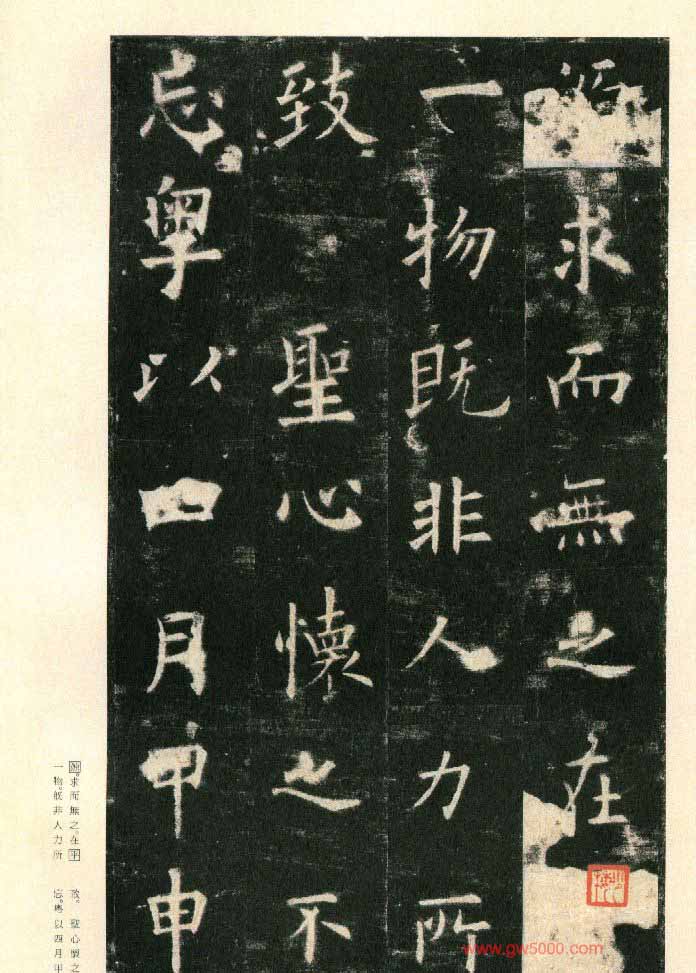 源求而無之在
一物既非人力所
致聖心懷之不
忘粤以四月甲申
源。求而無之。在乎
一物。既非人力所
致。聖心懷之
忘。粤以四月甲
www.gw5000.com